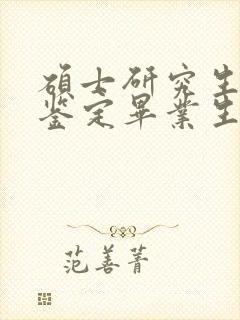 碩士研究生
鉴定畢業生
范善菁